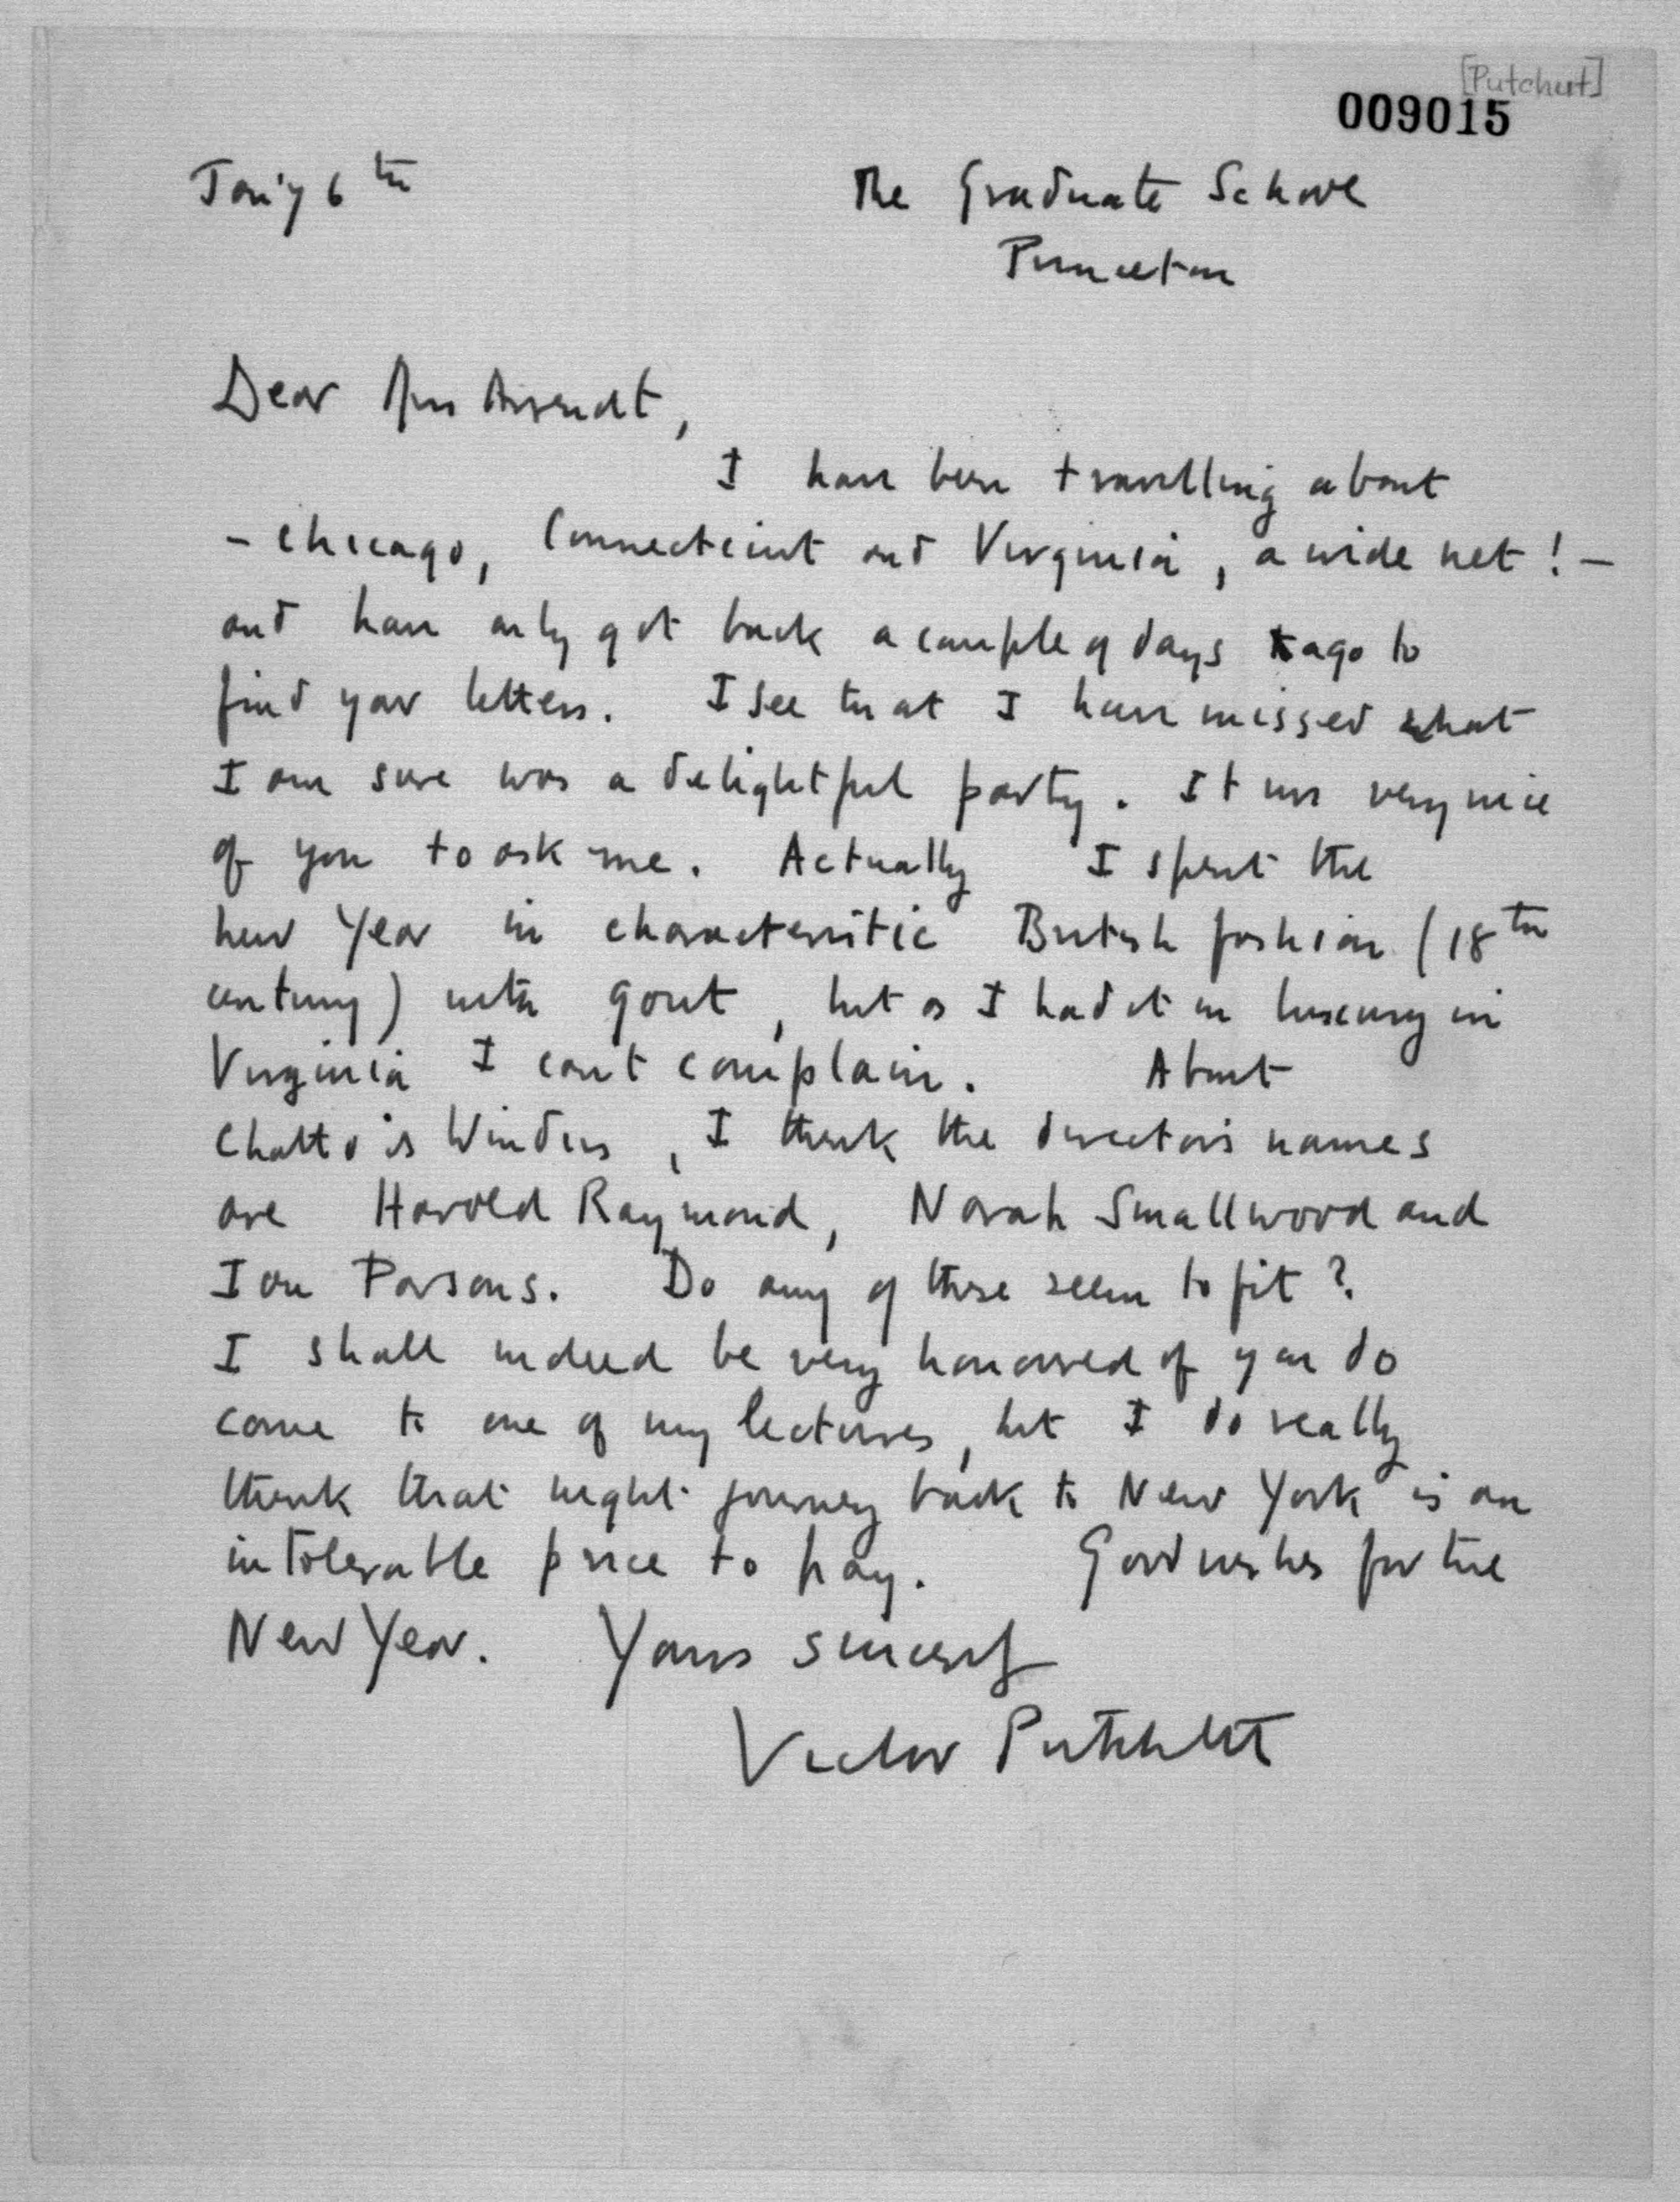 [Putchert]
009015
Jan'y 6th
The Graduate School
Princeton
Dear Miss Arendt,
I have been travelling about
- Chicago, Connecticut and Virginia, a wide net! -
and have only got back a couple of days ago to
find your letters. I see that I have missed what
I am sure was a delightful party. It was very nice
of you to ask me. Actually I spent the
new Year in characteristic British fashion (18th
century) with gout, but as I had it in luxury in
Virginia I can't complain. About
Chatto & Windus, I think the directors names
are Harold Raymond, Norah Smallwood and
Ian Parsons. Do any of these seem to fit?
I shall indeed be very honoured if you do
come to one of my lectures, but I do really
think that night journey back to New York is an
intolerable price to pay. Good wishes for the
New Year. Yours sincerely
Victor Pritchett